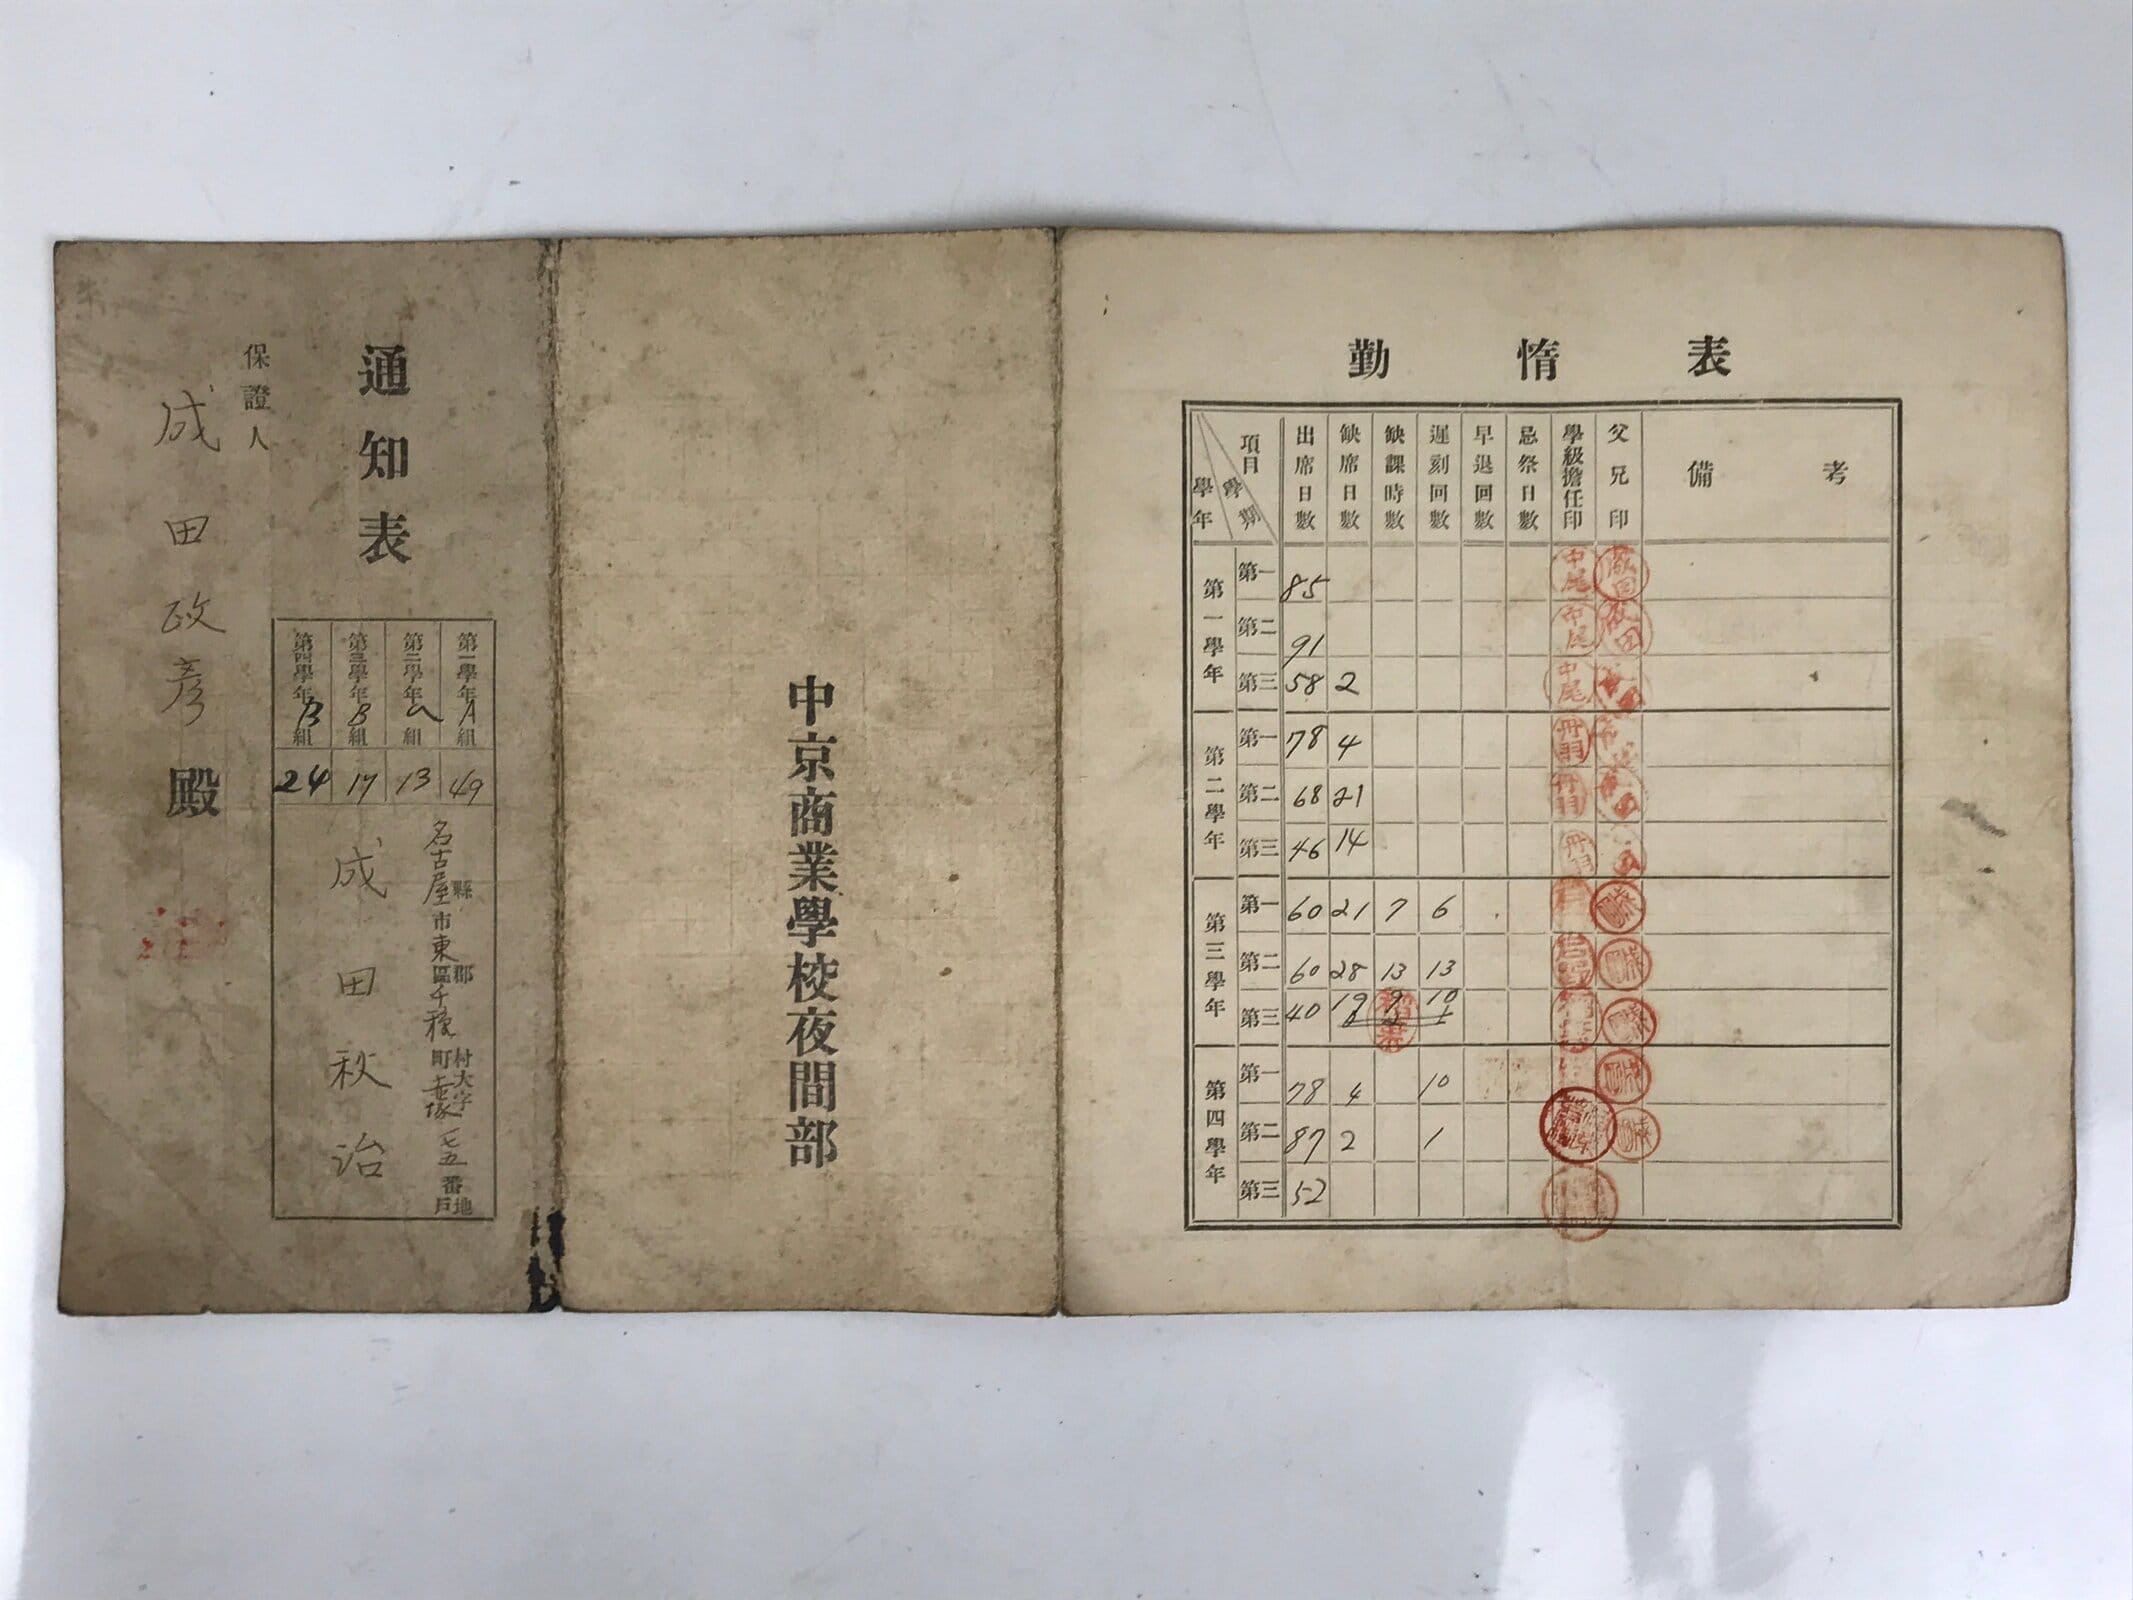 通知表
保證人
成田政彦殿
第一學年A組 49
第二學年 組 13
第三學年B組 17
第四學年B組 24
名古屋縣市東區郡千種町村大字 一七五番地戸
成田秋治
中京商業學校夜間部
勤惰表
項目 學期 學年 出席日數 缺席日數 缺課時數 遲刻回數 早退回數 忌祭日數 學級擔任印 父兄印 備考
第一學年 第一 85 中尾 成田
第二 91 中尾 成田
第三 58 2 中尾
第二學年 第一 78 4 丹羽
第二 68 21 丹羽
第三 46 14 丹羽
第三學年 第一 60 21 7 6
第二 60 28 13 13
第三 40 19 9 10
第四學年 第一 78 4 10
第二 87 2 1
第三 52